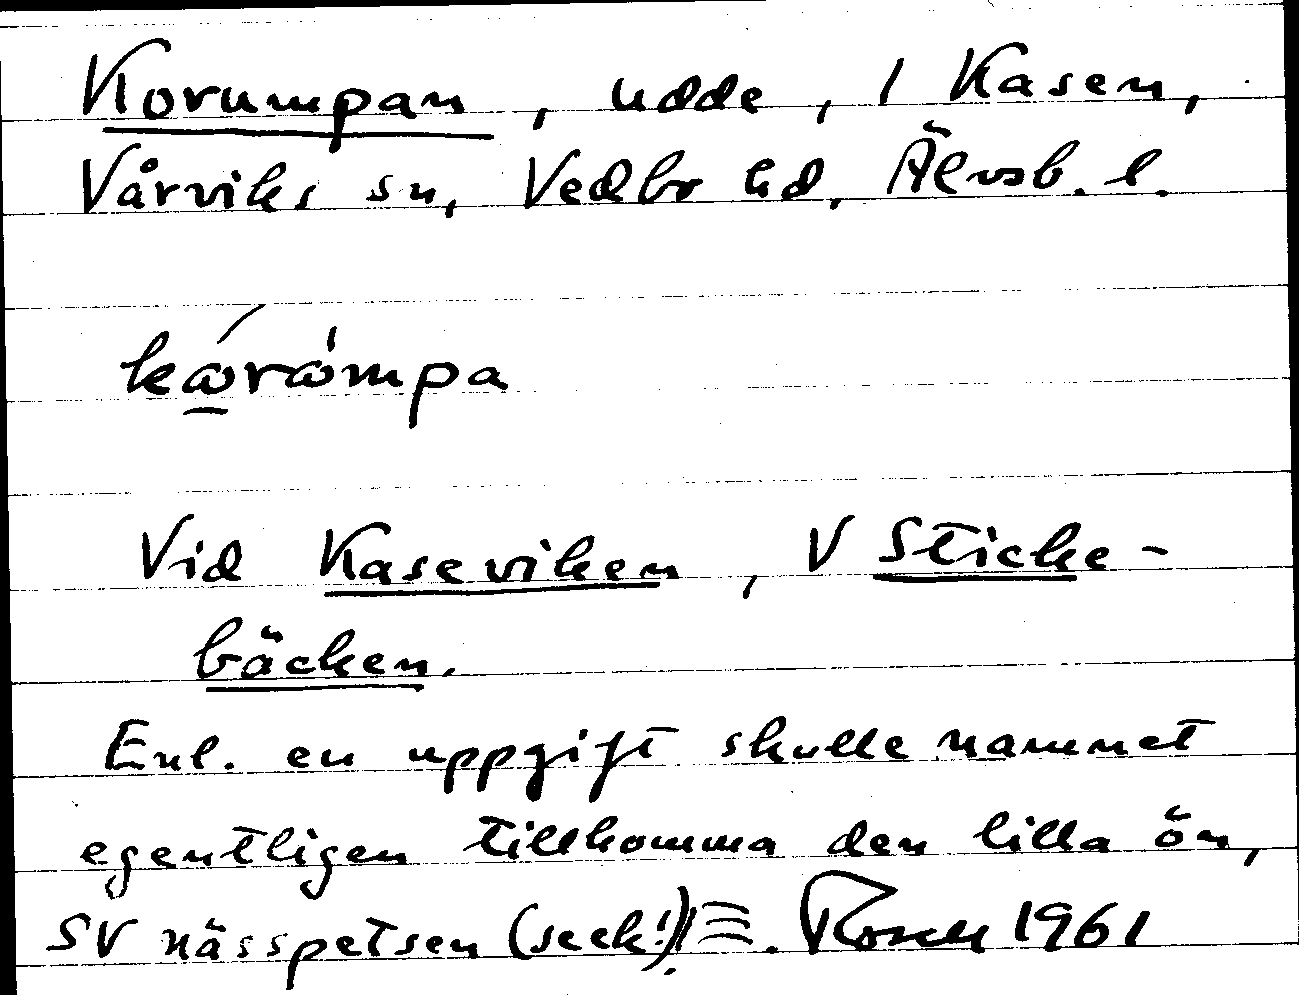 Korumpan, udde, 1 Kasen,
Vårviks sn, Vedbo hd, Älvsb. l.
Vid Kaseviken, V Sticke-
bäcken.
Enl. en uppgift skulle namnet
egentligen tillkomma den lilla ön,
SV nässpetsen (seek!) 1961